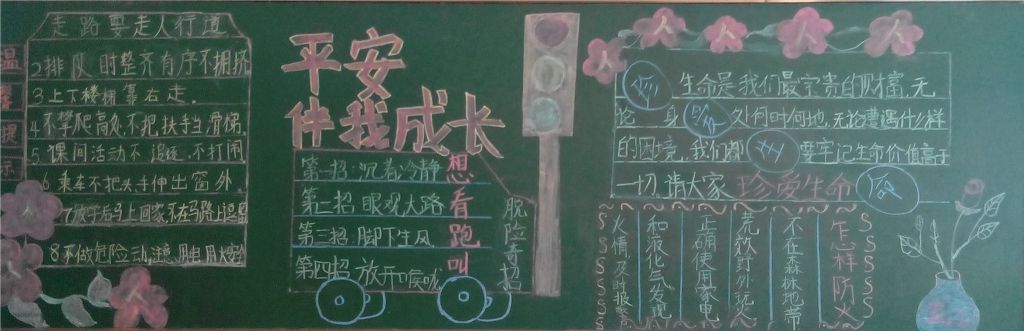 温馨提示
走路要走人行道
2.排队时整齐有序不拥挤
3.上下楼梯靠右走.
4.不攀爬高处,不把扶手当滑梯.
5.课间活动不追逐,不打闹
6.乘车不把头手伸出窗外.
8.不做危险动
平安
伴我成长
第一招:沉着冷静 想
第二招 眼观大路 看
第三招 脚下生风 跑
第四招 放开口喉咙 叫
脱险奇招
生命是我们最宝贵的财富,无
论 身 处何时何地,无论遭遇什么样
的困境,我们都 要牢记生命价值高于
一切,请大家 珍爱生命
怎样防火
不在森林地带
荒郊野外玩火
正确使用家电
和液化气发现
火情及时报警